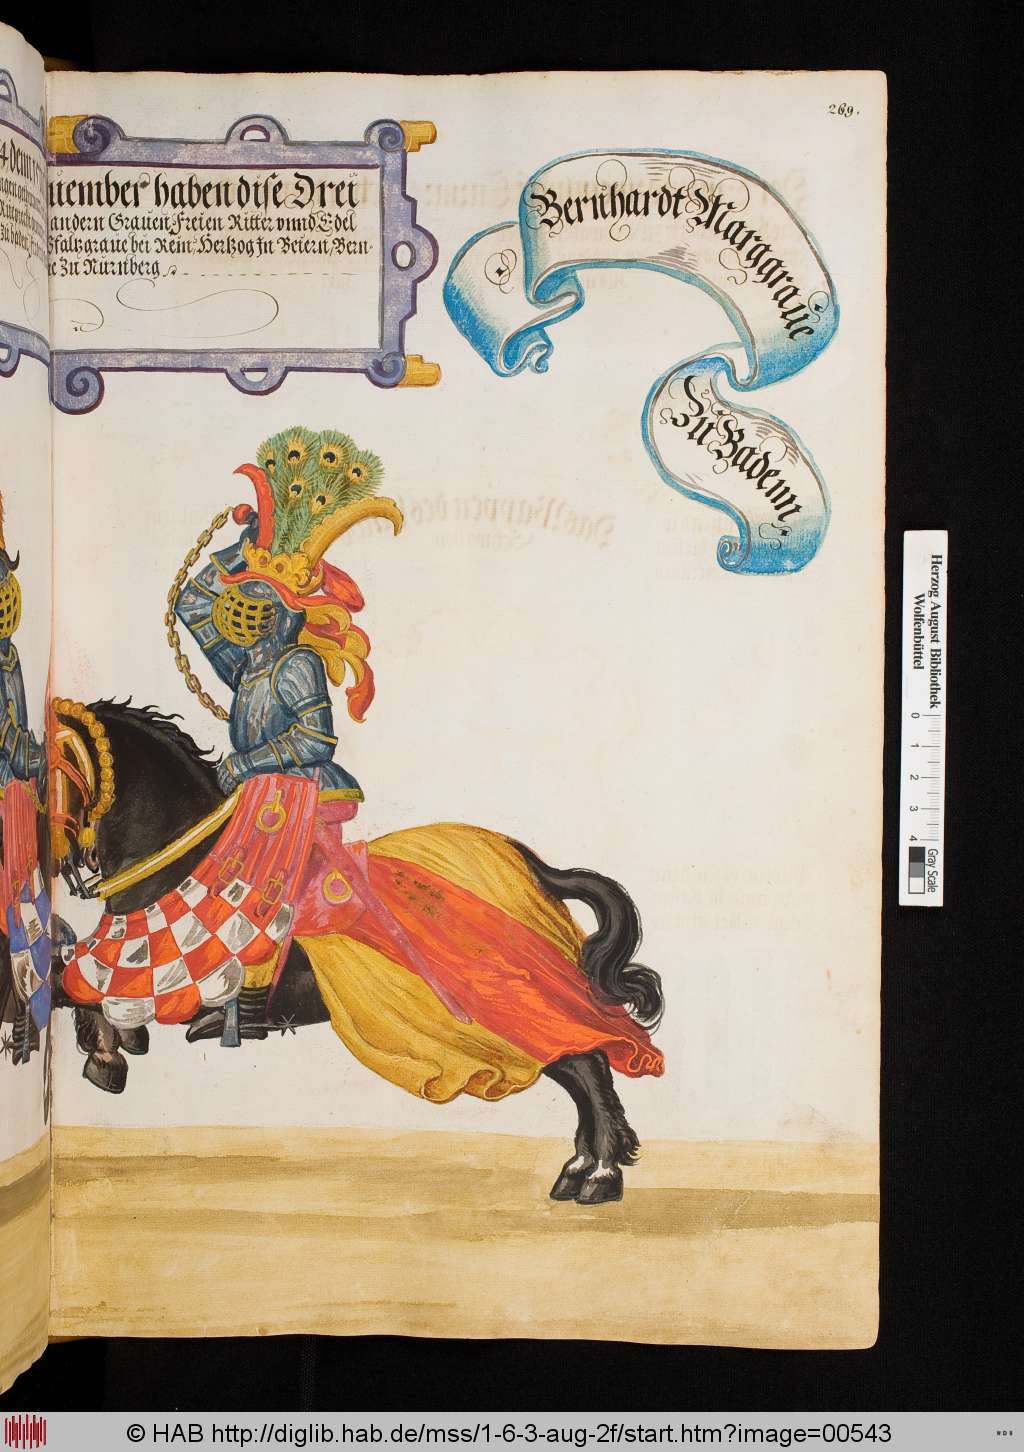 269.
uember haben dise Drei
andern Grauen Freien Ritter vnnd Edel
Pfaltzgraue bei Rein, Hertzog In Beiern, Bern-
Zu Nürnberg
Bernhardt Marggraue
Zu Badenn
Herzog August Bibliothek
Wolfenbüttel
0 1 2 3 4
Gray Scale
© HAB http://diglib.hab.de/mss/1-6-3-aug-2f/start.htm?image=00543